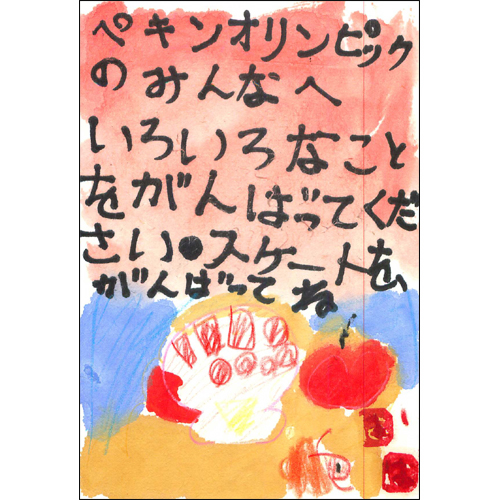 ペキンオリンピック
のみんなへ
いろいろなこと
をがんばってくだ
さい●スケートを
がんばってね